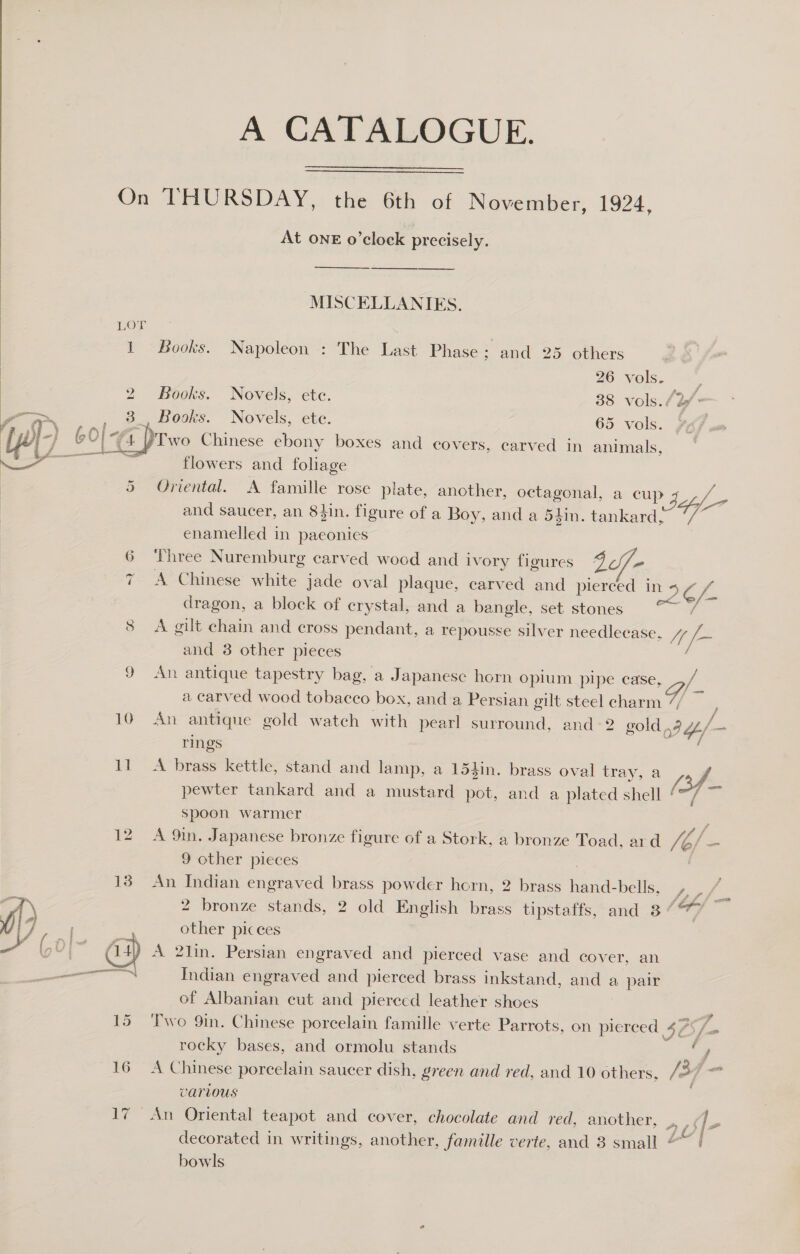 A CATALOGUE.
On THURSDAY, the 6th of November, 1924,
At ONE o'clock precisely.
MISCELLANIES.
LOT
1 Books. Napoleon : The Last Phase ; and 25 others
26 vols.
2 Books. Novels, etc. 38 vols.
3 Books. Novels, etc. 65 vols.
60/- 4 Two Chinese ebony boxes and covers, carved in animals,
flowers and foliage
5 Oriental. A famille rose plate, another, octagonal, a cup
and saucer, an 8½in. figure of a Boy, and a 5½in. tankard,
enamelled in paeonies
6 Three Nuremburg carved wood and ivory figures
7 A Chinese white jade oval plaque, carved and pierced in
dragon, a block of crystal, and a bangle, set stones
8 A gilt chain and cross pendant, a repousse silver needlecase,
and 3 other pieces
9 An antique tapestry bag, a Japanese horn opium pipe case,
a carved wood tobacco box, and a Persian gilt steel charm
10 An antique gold watch with pearl surround, and 2 gold
rings
11 A brass kettle, stand and lamp, a 15½in. brass oval tray, a
pewter tankard and a mustard pot, and a plated shell
spoon warmer
12 A 9in. Japanese bronze figure of a Stork, a bronze Toad, and
9 other pieces
13 An Indian engraved brass powder horn, 2 brass hand-bells,
2 bronze stands, 2 old English brass tipstaffs, and 3
other pieces
60/- 14 A 21in. Persian engraved and pierced vase and cover, an
Indian engraved and pierced brass inkstand, and a pair
of Albanian cut and pierced leather shoes
15 Two 9in. Chinese porcelain famille verte Parrots, on pierced
rocky bases, and ormolu stands
16 A Chinese porcelain saucer dish, green and red, and 10 others,
various
17 An Oriental teapot and cover, chocolate and red, another,
decorated in writings, another, famille verte, and 3 small
bowls